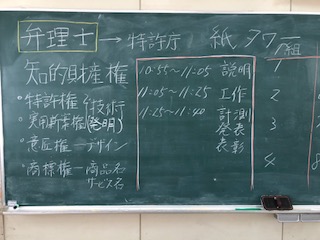 弁理士 → 特許庁
知的財産権
・特許権 技術
・実用新案権 (発明)
・意匠権 ー デザイン
・商標権 ー 商品名
サービス名
紙タワー
10:55〜11:05 説明
11:05〜11:25 工作
11:25〜11:40 計測
発表
表彰
組
1
2
3
4